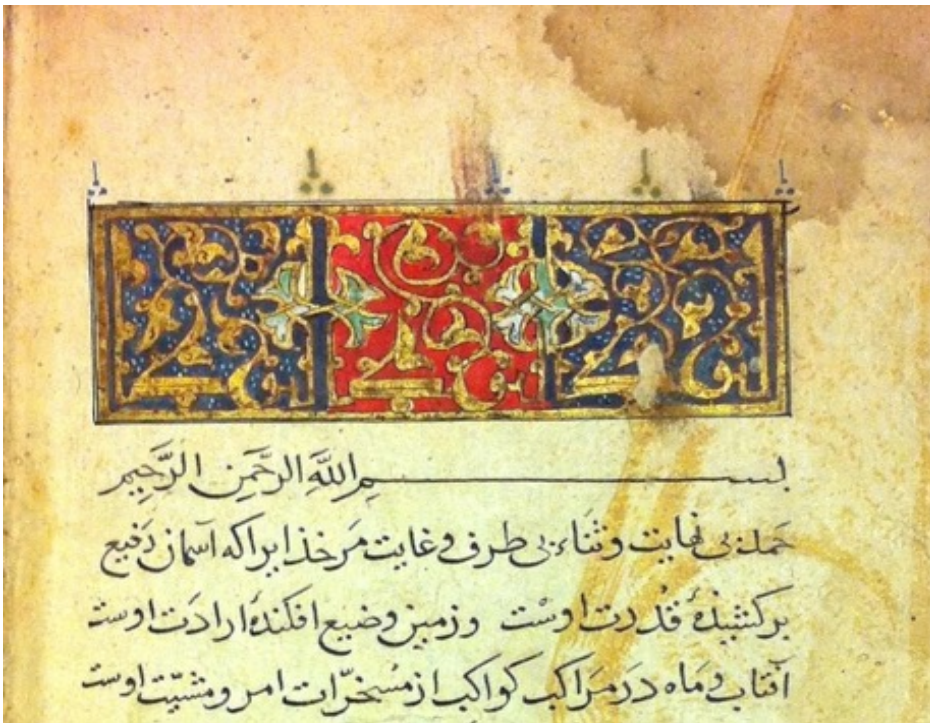 بسم اللَّهِ الرَّحمَنِ الرَّحِيمِ
حَمدِ بی نهایت و ثَنَاءِ بی طرف و غایت مَر خذایرا که آسمان رَفیع
برکشیذهٔ قُدرت اوست و زمین وضیع افکندهٔ ارادَت اوست
آفتاب و مَاه در مَراکب کواکب از مُسَخّرات امر و مشیّت اوست